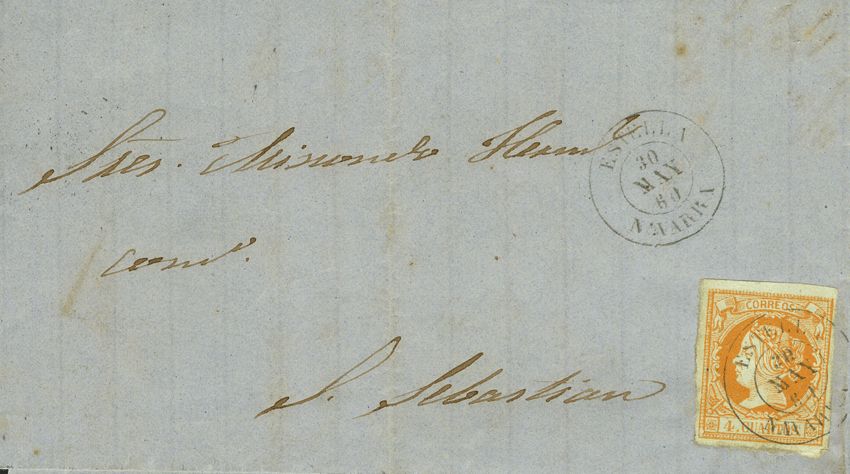 Sres.
com.
S. Sebastian
ESTELLA
30
MAY
60
NAVARRA
CORREOS
4 CUARTOS
ESTELLA
30
MAY
60
NAVARRA